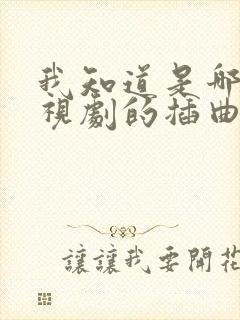 我知道是哪
視劇的插曲
讓讓我要開花